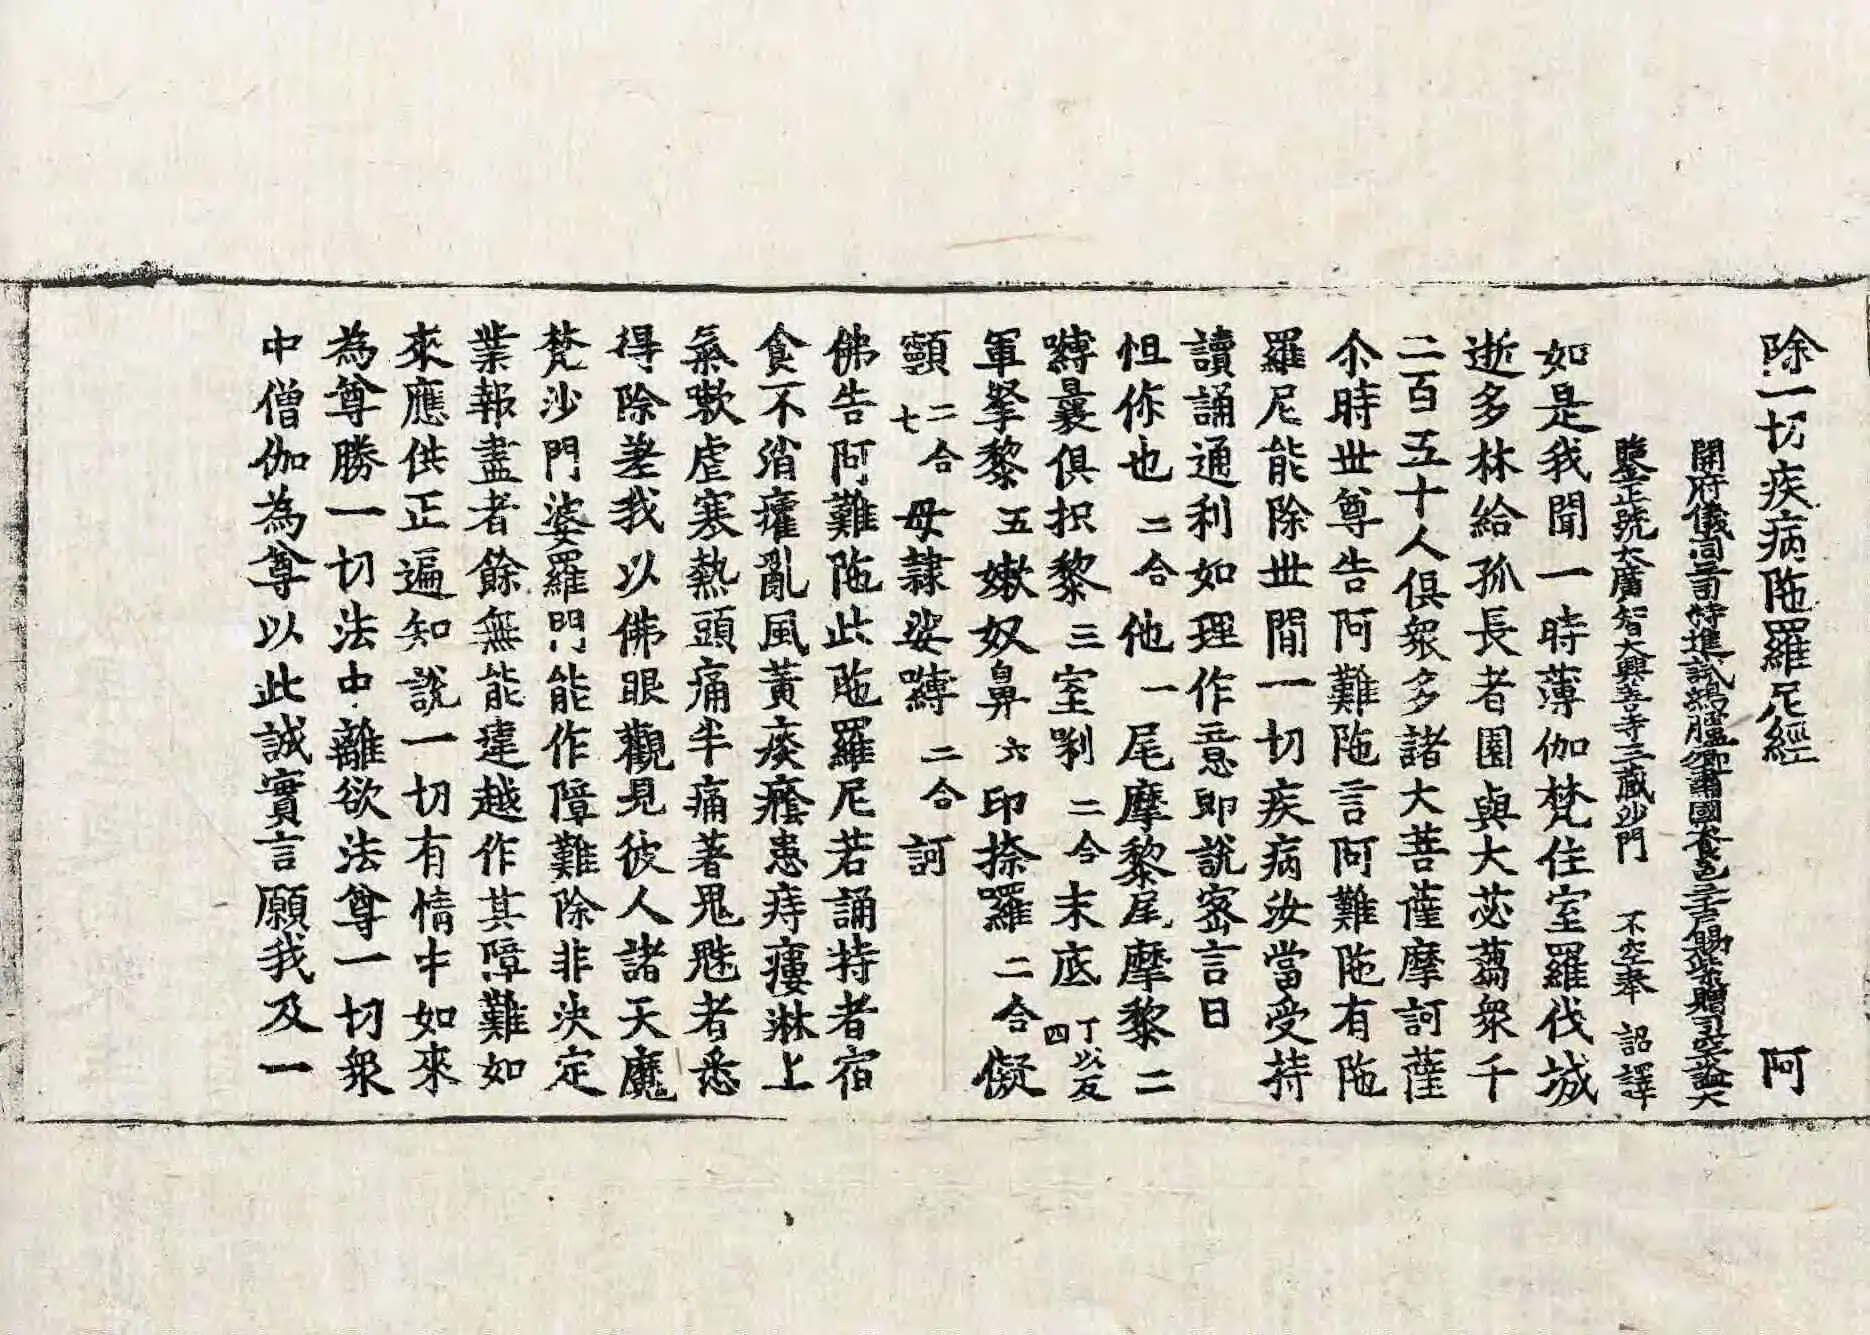 除一切疾病陁羅尼經　阿
開府儀同三司特進試鴻臚卿肅國公食邑三千戶賜紫贈司空謚大
鑒正號大廣智大興善寺三藏沙門　不空奉　詔譯
如是我聞一時薄伽梵住室羅伐城
逝多林給孤長者園與大苾蒭衆千
二百五十人俱衆多諸大菩薩摩訶薩
尒時世尊告阿難陁言阿難陁有陁
羅尼能除世間一切疾病汝當受持
讀誦通利如理作意即說密言曰
怛你也二合他一尾摩黎尾摩黎二
嚩曩俱枳黎三室唎二合末底丁以反四
軍拏黎五嫰奴鼻六印捺囉二合儗
𩕳二合七母隷娑嚩二合訶
佛告阿難陁此陁羅尼若誦持者宿
食不消癨亂風黃痰癊患痔瘻淋上
氣嗽虐寒熱頭痛半痛著鬼魅者悉
得除差我以佛眼觀見彼人諸天魔
梵沙門婆羅門能作障難除非決定
業報盡者餘無能違越作其障難如
來應供正遍知說一切有情中如來
為尊勝一切法中離欲法尊一切衆
中僧伽為尊以此誠實言願我及一